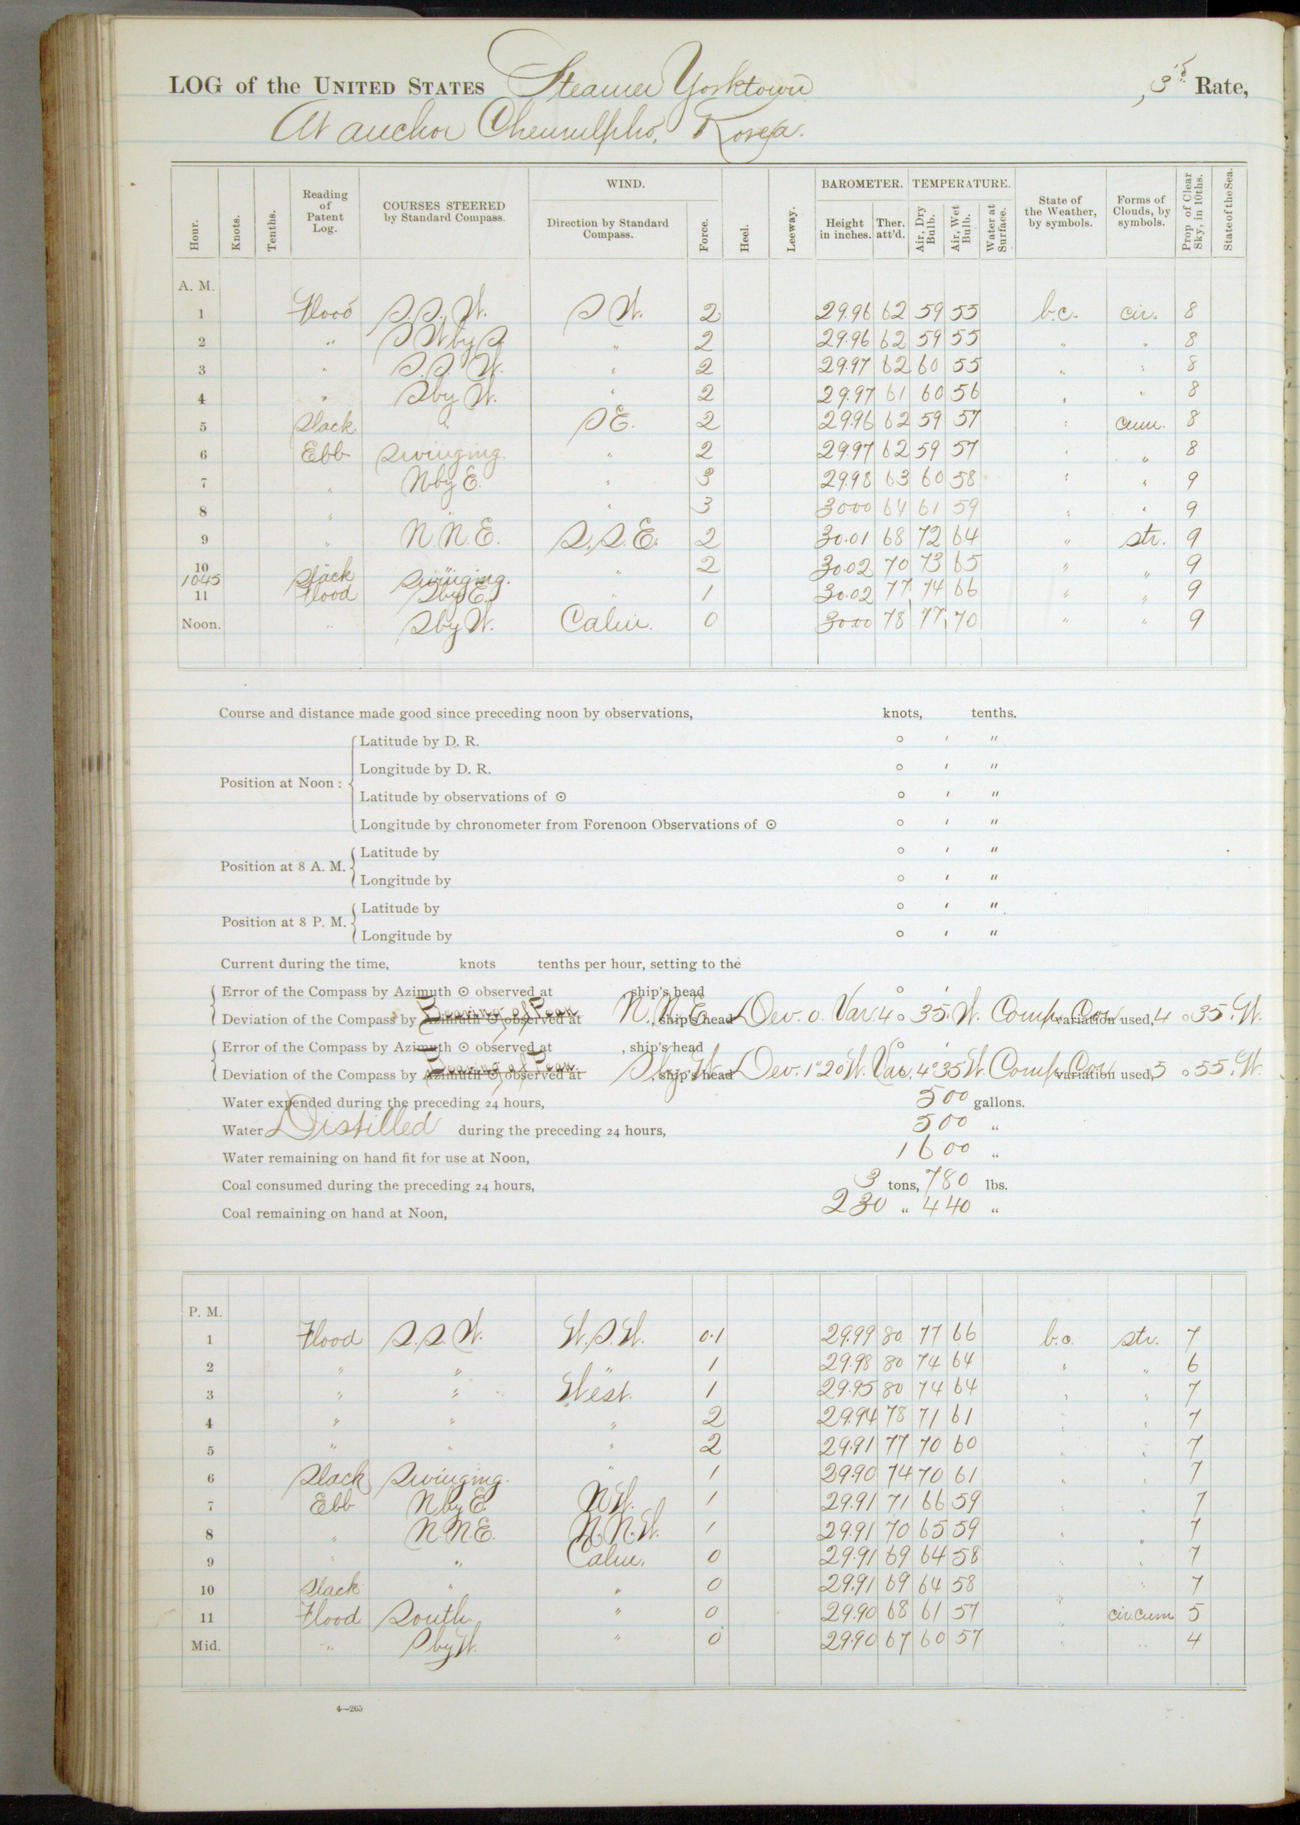 LOG of the UNITED STATES Steamer Yorktown, 3rd Rate,
At anchor Chemulpho, Korea.
Hour. Knots. Tenths. Reading of Patent Log. COURSES STEERED by Standard Compass. WIND. Direction by Standard Compass. Force. Heel. Leeway. BAROMETER. Height in inches. Ther. att'd. TEMPERATURE. Air, Dry Bulb. Air, Wet Bulb. Water at Surface. State of the Weather, by symbols. Forms of Clouds, by symbols. Prop. of Clear Sky, in 10ths. State of the Sea.
A. M.
1 Flood S.S.W. S W. 2 29.96 62 59 55 b.c. cir. 8
2 " S W by S " 2 29.96 62 59 55 " " 8
3 " S.S.W. " 2 29.97 62 60 55 " " 8
4 " S by W. " 2 29.97 61 60 56 " " 8
5 Slack " S E. 2 29.96 62 59 57 " cum. 8
6 Ebb Swinging. " 2 29.97 62 59 57 " " 8
7 " N by E. " 3 29.98 63 60 58 " " 9
8 " " " 3 30.00 64 61 59 " " 9
9 " N.N.E. S.S.E. 2 30.01 68 72 64 " str. 9
10 " " " 2 30.02 70 73 65 " " 9
1045 Slack Swinging.
11 Flood S by E. " 1 30.02 77 74 66 " " 9
Noon. " S by W. Calm. 0 30.00 78 77 70 " " 9
Course and distance made good since preceding noon by observations, knots, tenths.
Position at Noon: Latitude by D. R. ° ′ ″
Longitude by D. R. ° ′ ″
Latitude by observations of ⊙ ° ′ ″
Longitude by chronometer from Forenoon Observations of ⊙ ° ′ ″
Position at 8 A. M. Latitude by ° ′ ″
Longitude by ° ′ ″
Position at 8 P. M. Latitude by ° ′ ″
Longitude by ° ′ ″
Current during the time, knots tenths per hour, setting to the
Error of the Compass by Azimuth ⊙ observed at , ship's head ° ′
Deviation of the Compass by Azimuth ⊙ observed at Bearing of Peak N.N.E. , ship's head Dev. 0. Var. 4° 35′ W. Comp. Cor. variation used, 4° 35′ W.
Error of the Compass by Azimuth ⊙ observed at , ship's head ° ′
Deviation of the Compass by Azimuth ⊙ observed at Bearing of Peak S by W. , ship's head Dev. 1° 20 W. Var. 4° 35 W. Comp. Cor. variation used, 5° 55′ W.
Water expended during the preceding 24 hours, 500 gallons.
Water Distilled during the preceding 24 hours, 500 "
Water remaining on hand fit for use at Noon, 1600 "
Coal consumed during the preceding 24 hours, 3 tons, 780 lbs.
Coal remaining on hand at Noon, 230 " 440 "
P. M.
1 Flood S.S.W. W.S.W. 0.1 29.99 80 77 66 b.c. str. 7
2 " " " 1 29.98 80 74 64 " " 6
3 " " West. 1 29.95 80 74 64 " " 7
4 " " " 2 29.94 78 71 61 " " 7
5 " " " 2 29.91 77 70 60 " " 7
6 Slack Swinging. " 1 29.90 74 70 61 " " 7
7 Ebb N by E. N W. 1 29.91 71 66 59 " " 7
8 " N N.E. N.N.W. 1 29.91 70 65 59 " " 7
9 " " Calm. 0 29.91 69 64 58 " " 7
10 Slack " " 0 29.91 69 64 58 " " 7
11 Flood South. " 0 29.90 68 61 57 " cir. cum 5
Mid. " S by W. " 0 29.90 67 60 57 " " 4
4—265